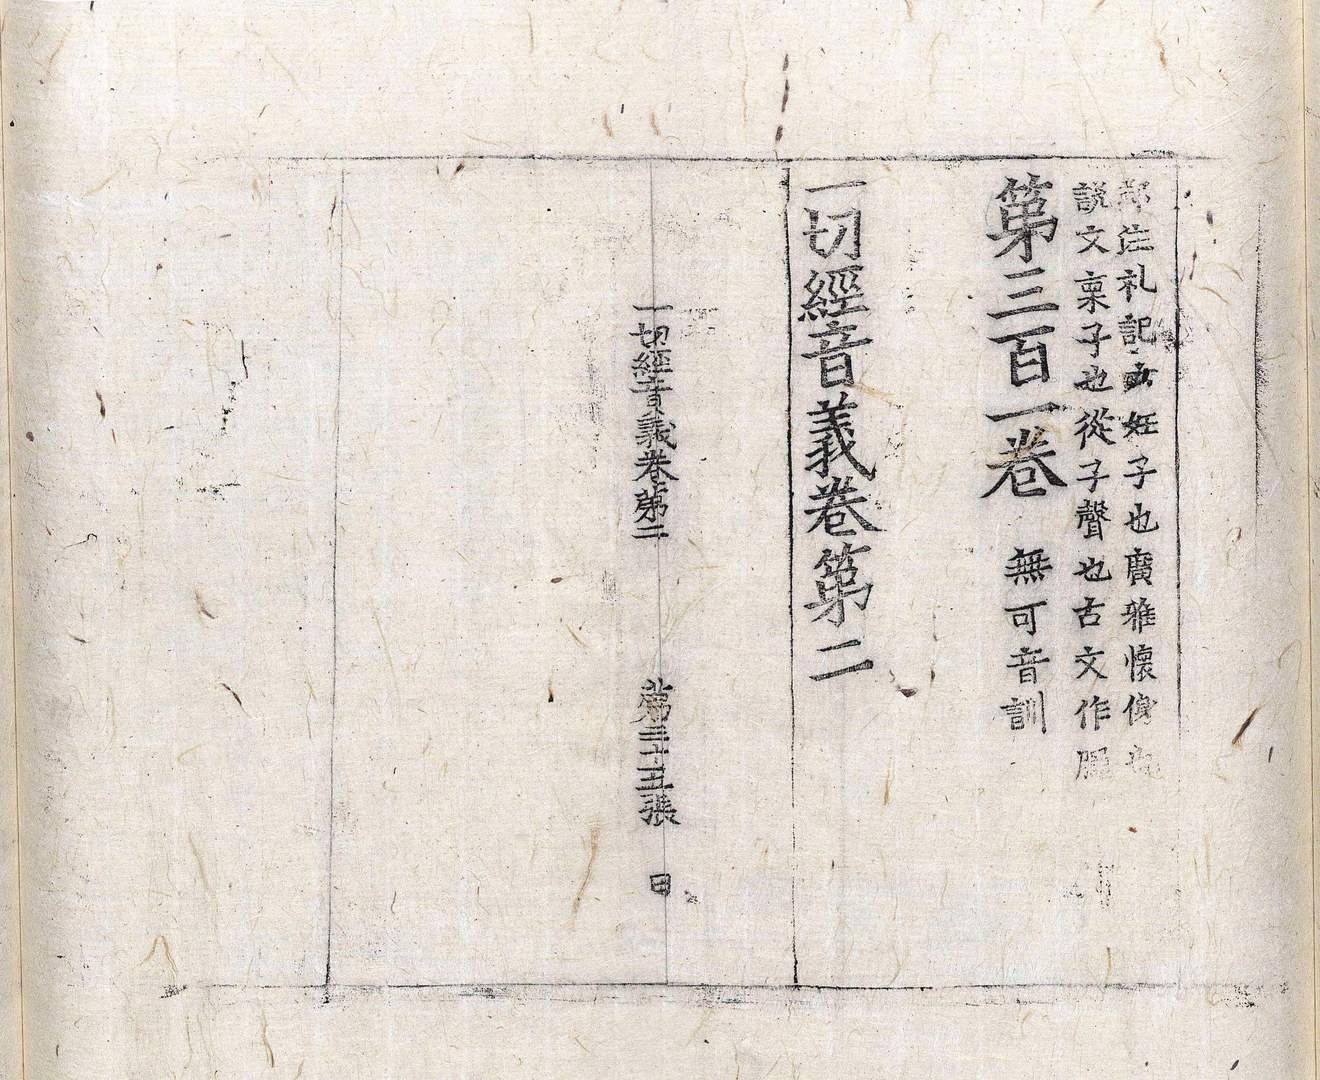 鄭注礼記云妊子也廣雅懷身也
説文稟子也從子聲也古文作𦜉
第三百一卷 無可音訓
一切經音義卷第二
一切經音義卷第二 第三十五張 日